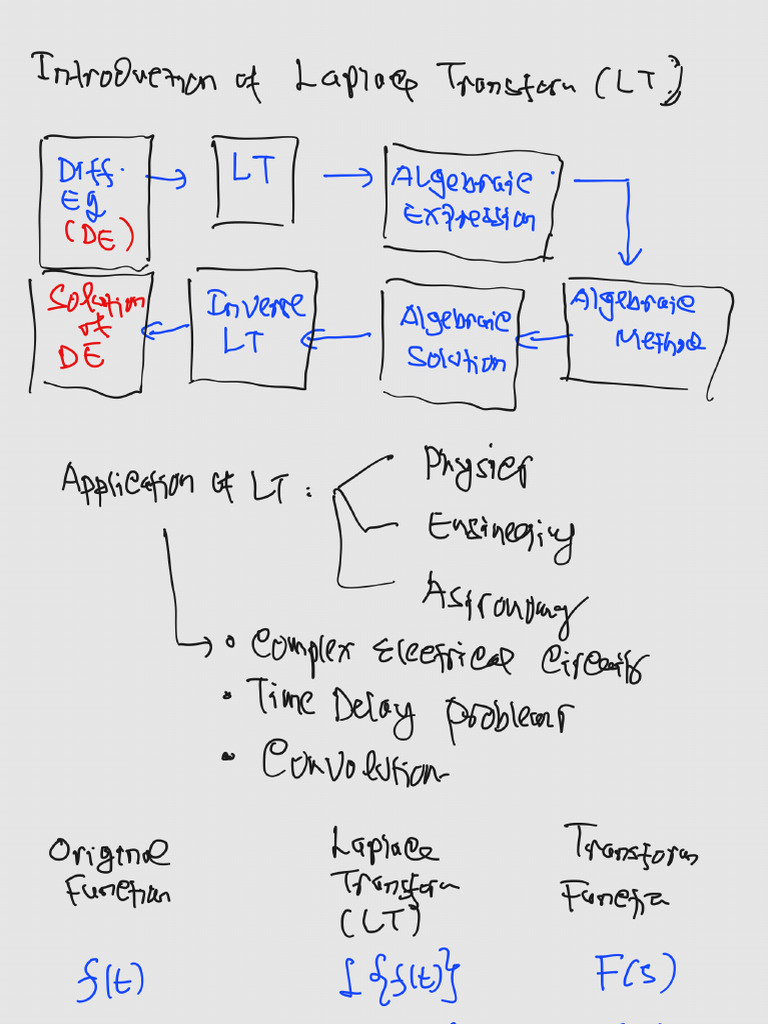 Introduction of Laplace Transform (LT)
Diff.
Eq
(DE)
LT
Algebraic
Expression
Algebraic
Method
Algebraic
Solution
Inverse
LT
Solution
of
DE
Application of LT :
Physics
Engineering
Astronomy
• Complex Electrical Circuits
• Time Delay Problems
• Convolution
Original
Function
Laplace
Transform
(LT)
Transform
Function
f(t)
ℒ{f(t)}
F(s)